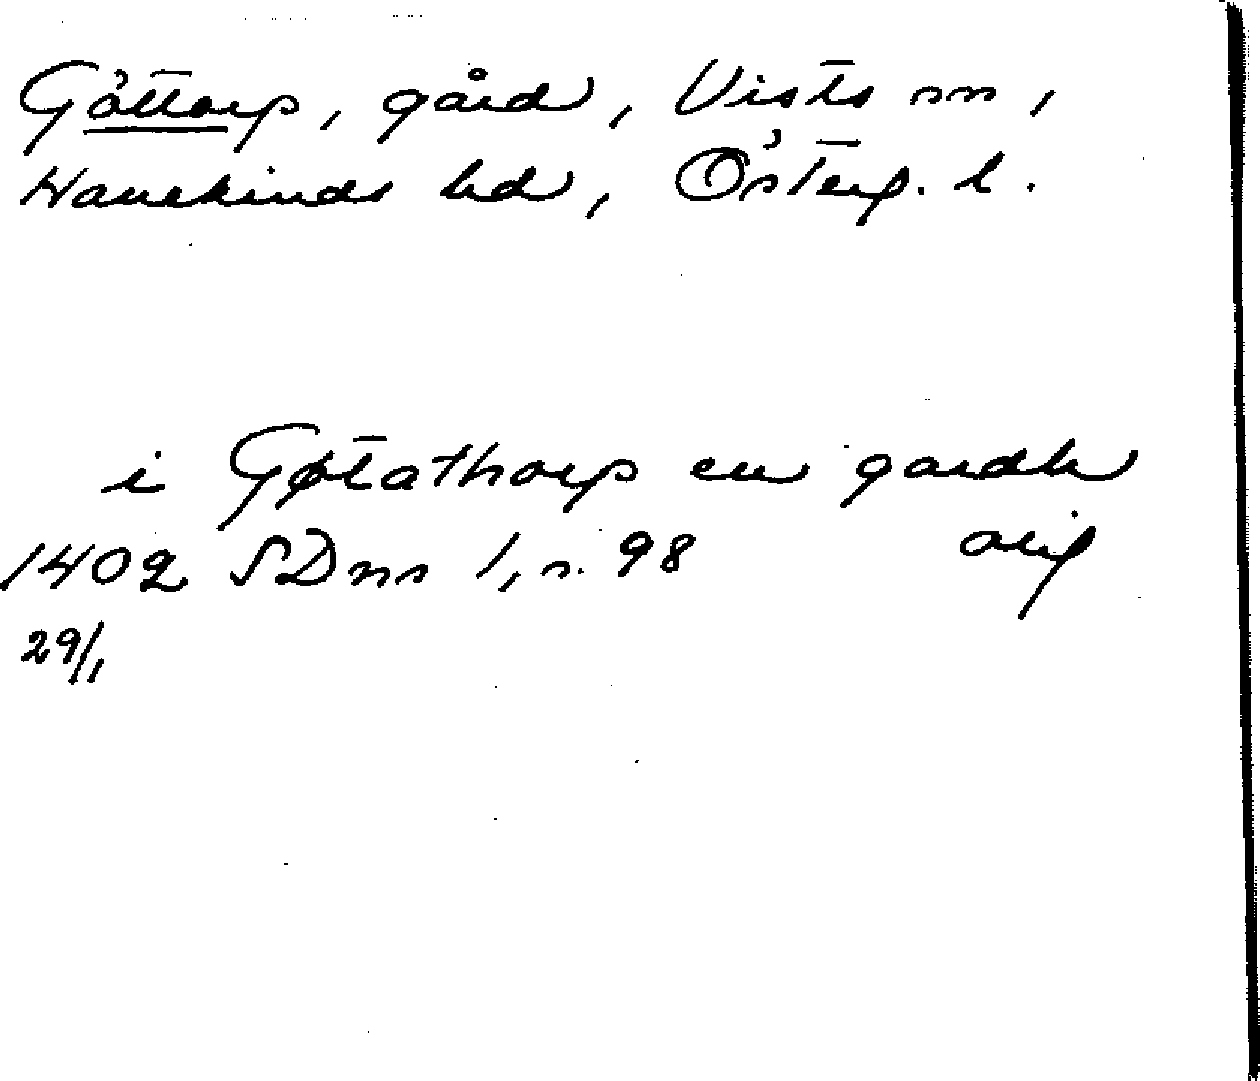 Göttorp, gård, Vists sn,
Hanekinds hd, Österg. l.
i Gøtathorp en gardh
1402 SDns 1, s. 98 orig
29/1